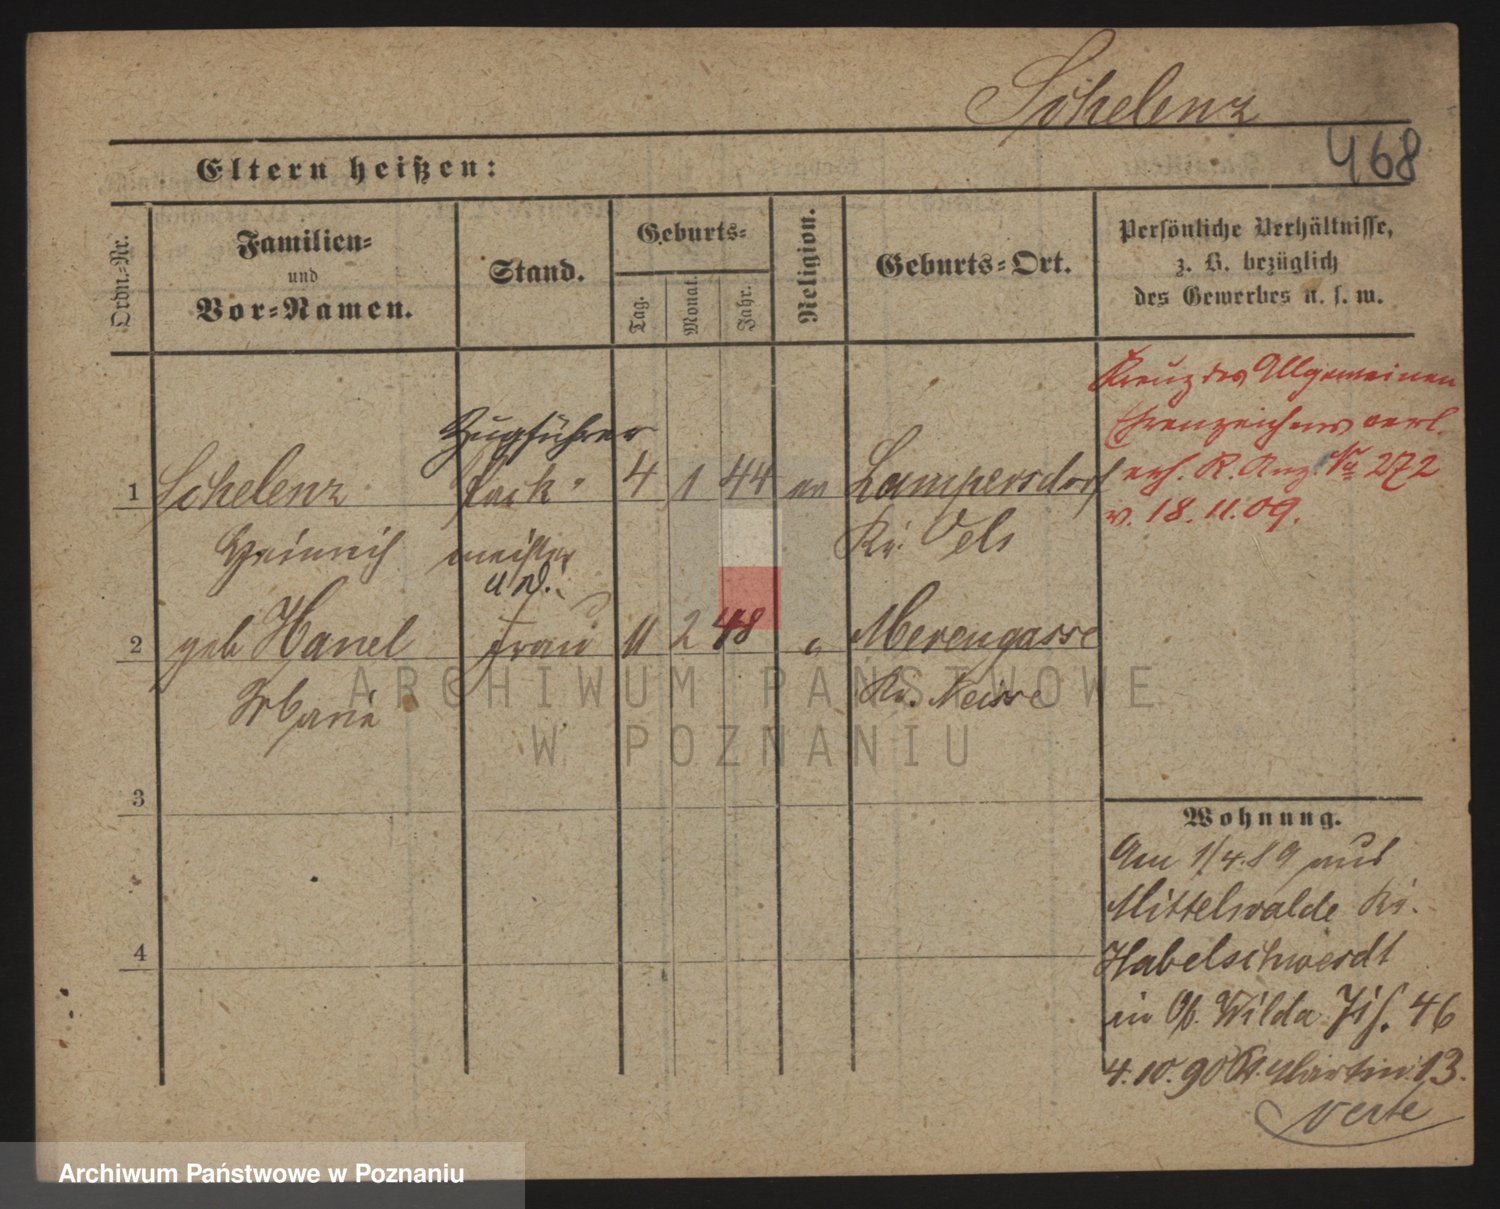 Schelenz
468
Eltern heißen:
Ordn.-Nr.
Familien-
und
Vor-Namen.
Stand.
Geburts-
Tag.
Monat.
Jahr.
Religion.
Geburts-Ort.
Persönliche Verhältnisse,
z. B. bezüglich
des Gewerbes u. s. w.
Kreuz des Allgemeinen
Ehrenzeichens verl.
erh. R. Anz. No 272
v. 18.11.09.
Zugführer
1 Schelenz Pack- 4 1 44 ev Lampersdorf
Heinrich meister Kr. Oels
a.D.
2 geb Hanel Frau 11 2 48 " Merengasse
Marie Kr. Neisse
ARCHIWUM PAŃSTWOWE
W POZNANIU
3
4
Wohnung.
Am 1/4.89 aus
Mittelwalde Kr.
Habelschwerdt
in Ob. Wilda 46
4.10.90 St. Martin 13.
verte
Archiwum Państwowe w Poznaniu